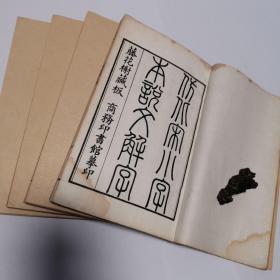 仿北宋小字
本說文解字
藤花榭藏板 商務印書館摹印